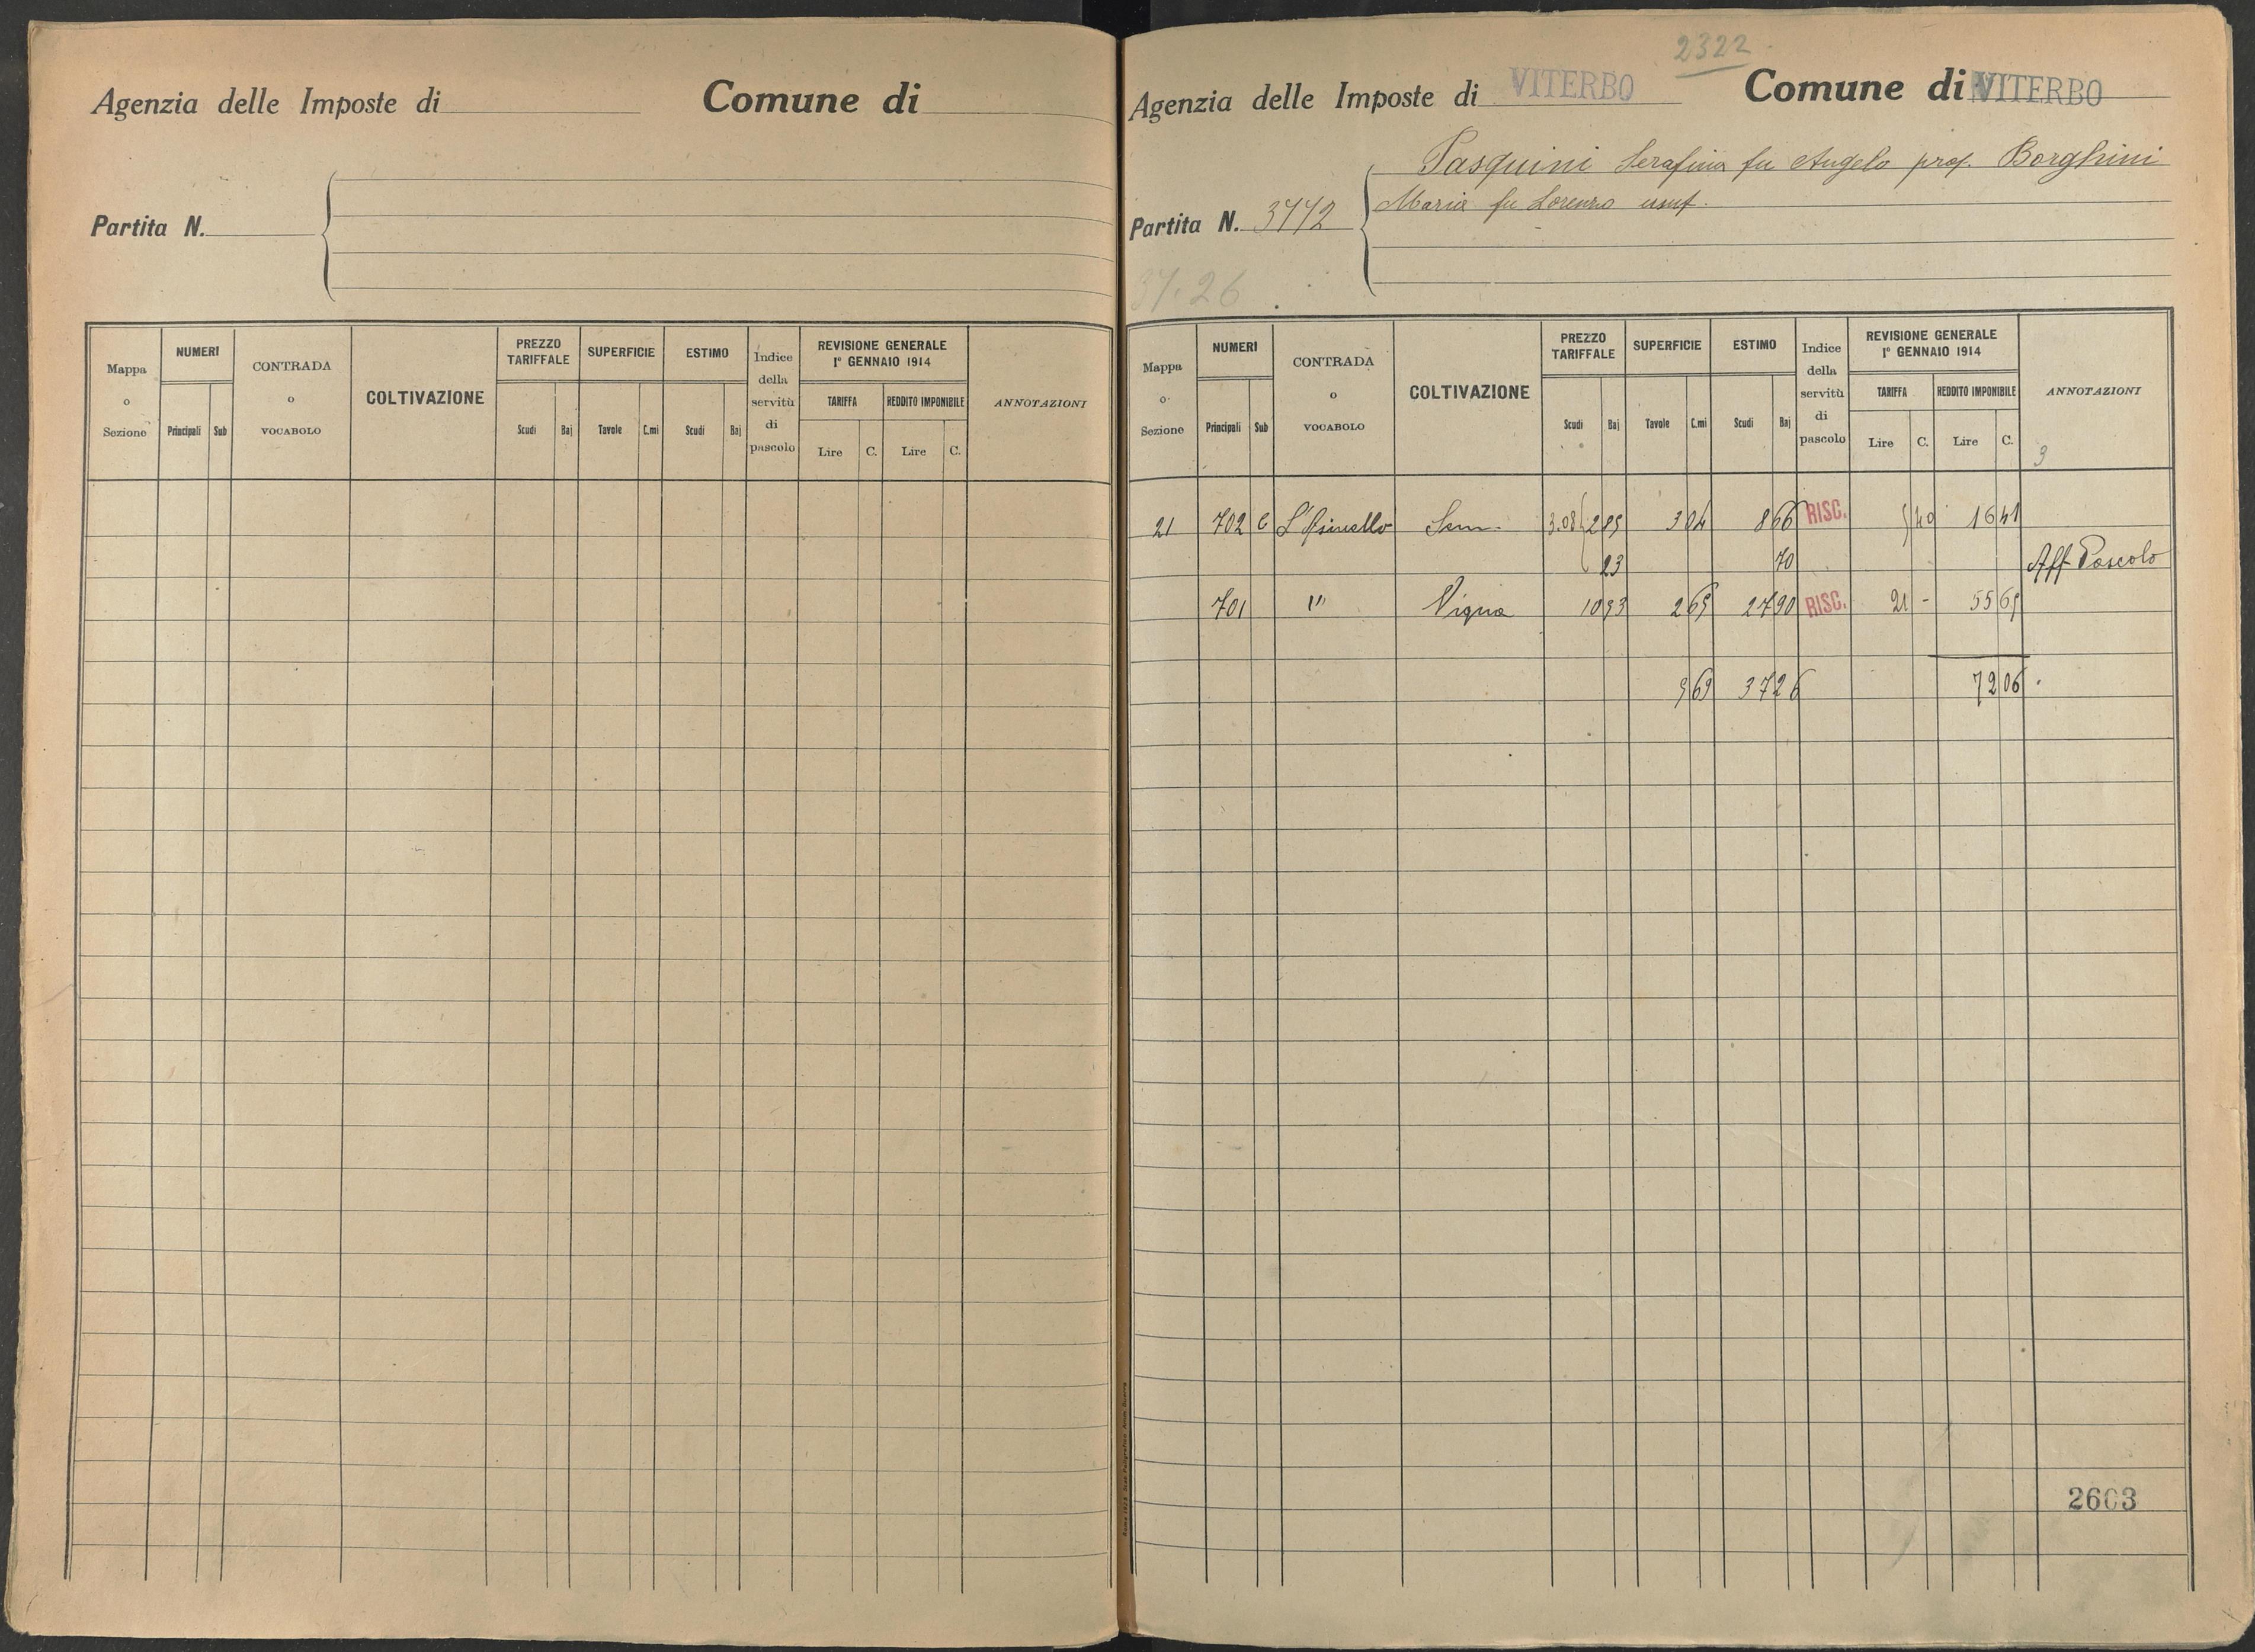 Agenzia delle Imposte di Comune di
Partita N.
Mappa o Sezione NUMERI CONTRADA o VOCABOLO COLTIVAZIONE PREZZO TARIFFALE SUPERFICIE ESTIMO Indice della servitù di pascolo REVISIONE GENERALE 1° GENNAIO 1914 ANNOTAZIONI
TARIFFA REDDITO IMPONIBILE
Principali Sub Scudi Baj Tavole C.mi Scudi Baj Lire C. Lire C.
2322
Agenzia delle Imposte di VITERBO Comune di VITERBO
Pasquini Serafina fu Angelo prop. Borghini
Maria fu Lorenzo usuf.
Partita N. 3772
37.26
Mappa o Sezione NUMERI CONTRADA o VOCABOLO COLTIVAZIONE PREZZO TARIFFALE SUPERFICIE ESTIMO Indice della servitù di pascolo REVISIONE GENERALE 1° GENNAIO 1914 ANNOTAZIONI
TARIFFA REDDITO IMPONIBILE
Principali Sub Scudi Baj Tavole C.mi Scudi Baj Lire C. Lire C.
3
21 702 Sem. 3.08 2 85 3 04 8 66 RISC. 5 40 16 41
23 70 Aff Pascolo
701 " Vigna 10 53 2 65 27 90 RISC. 21 - 55 65
5 69 37 26 72 06
2603